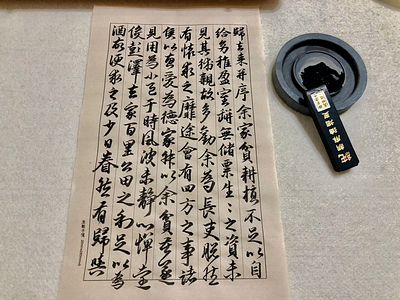 歸去來并序余家貧耕植不足以自
給幼稚盈室缾無儲粟生々之資未
見其術親故多勸余為長吏脫然
有懷求之靡途會有四方之事諸
侯以惠愛為德家叔以余貧苦遂
見用為小邑于時風波未靜心憚遠
役彭澤去家百里公田之利足以為
酒故便求之及少日眷然有歸與